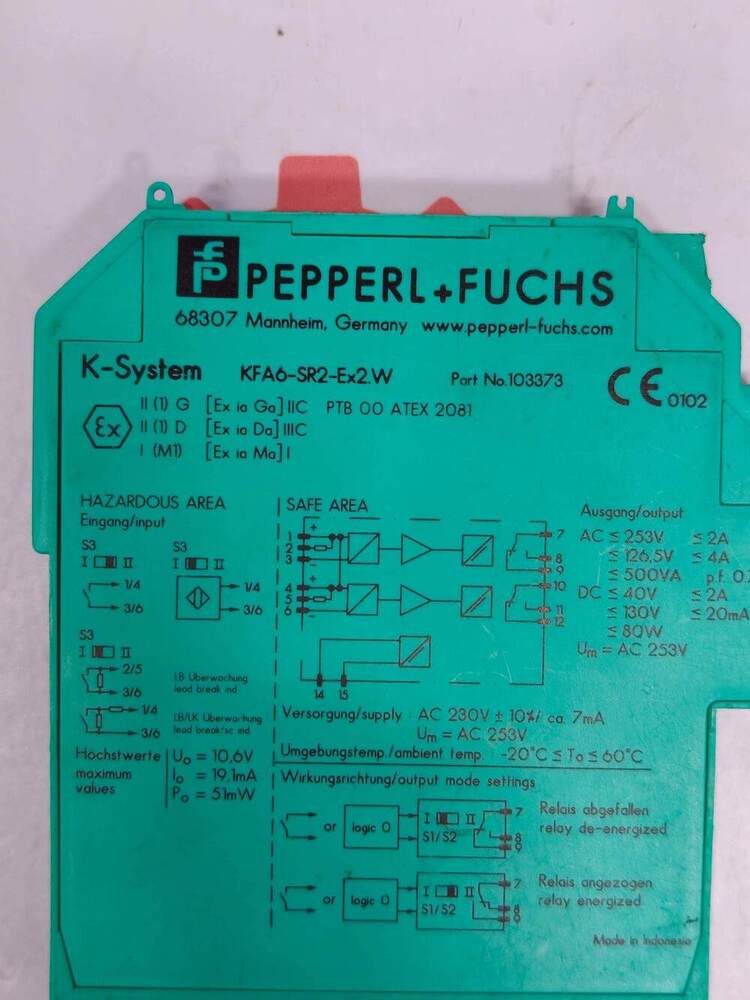 PEPPERL+FUCHS
68307 Mannheim, Germany www.pepperl-fuchs.com
K-System KFA6-SR2-Ex2.W Part No.103373 CE 0102
Ex
II (1) G [Ex ia Ga] IIC PTB 00 ATEX 2081
II (1) D [Ex ia Da] IIIC
I (M1) [Ex ia Ma] I
HAZARDOUS AREA
Eingang/input
S3 S3
I II I II
1/4 1/4
3/6 3/6
S3
I II
2/5
3/6
LB Überwachung
lead break ind
1/4
3/6
LB/LK Überwachung
lead break/sc ind.
SAFE AREA
1 + 7
2 8
3 - 9
4 + 10
5 11
6 - 12
14 15
Ausgang/output
AC ≤ 253V ≤ 2A
≤ 126,5V ≤ 4A
≤ 500VA p.f. 0.
DC ≤ 40V ≤ 2A
≤ 130V ≤ 20mA
≤ 80W
Um = AC 253V
Versorgung/supply AC 230V ± 10%/ ca. 7mA
Um = AC 253V
Umgebungstemp./ambient temp. -20°C ≤ Ta ≤ 60°C
Höchstwerte
maximum
values
Uo = 10,6V
Io = 19,1mA
Po = 51mW
Wirkungsrichtung/output mode settings
or logic 0 I II S1/S2 7 8 9
Relais abgefallen
relay de-energized
or logic 0 I II S1/S2 7 8 9
Relais angezogen
relay energized
Made in Indonesia